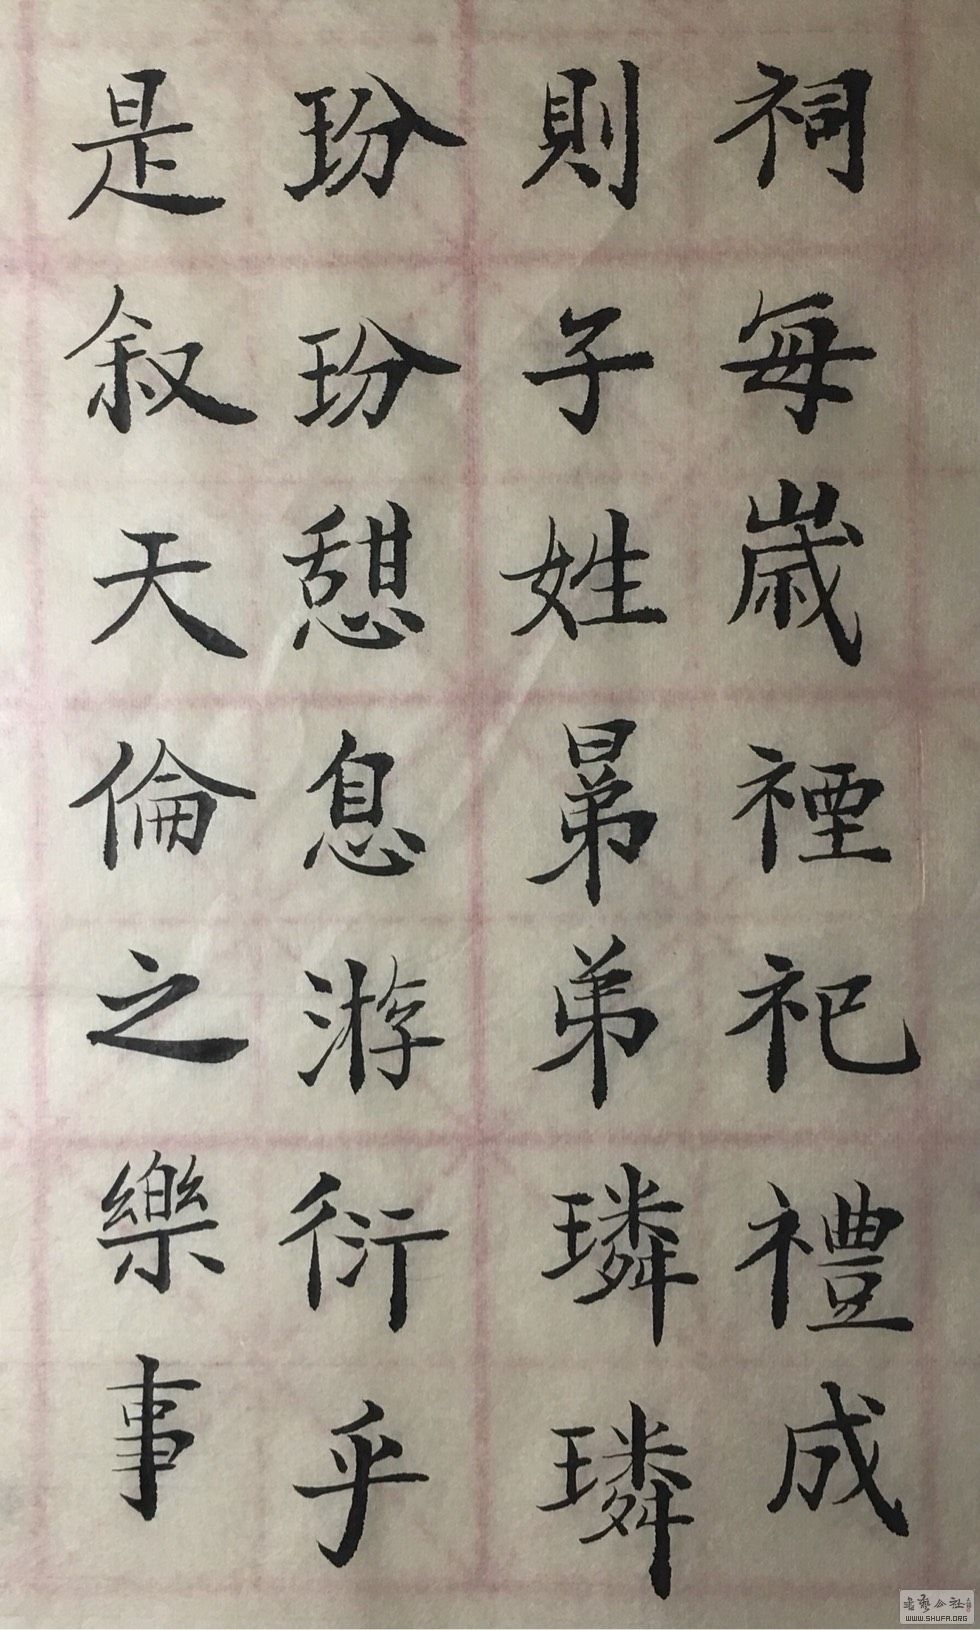 祠每歲禋祀禮成
則子姓晜弟璘璘
玢玢憩息游衍乎
是叙天倫之樂事
WWW.SHUFA.ORG